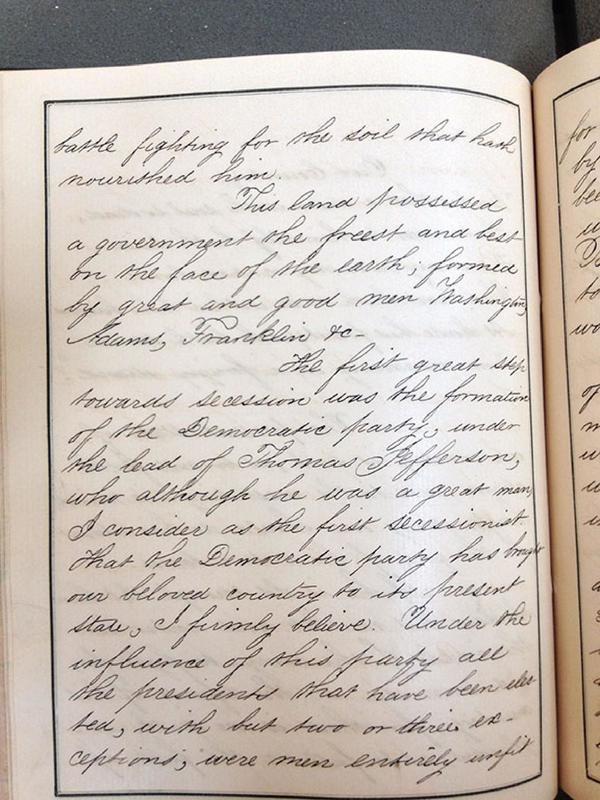 battle fighting for the soil that hath
nourished him.
This land possessed
a government the freest and best
on the face of the earth; formed
by great and good men Washington,
Adams, Franklin &c-
The first great step
towards secession was the formation
of the Democratic party, under
the lead of Thomas Jefferson,
who although he was a great man,
I consider as the first secessionist.
That the Democratic party has brought
our beloved country to its present
state, I firmly believe. Under the
influence of this party all
the presidents that have been elec
ted, with but two or three ex-
ceptions, were men entirely unfit
for
by